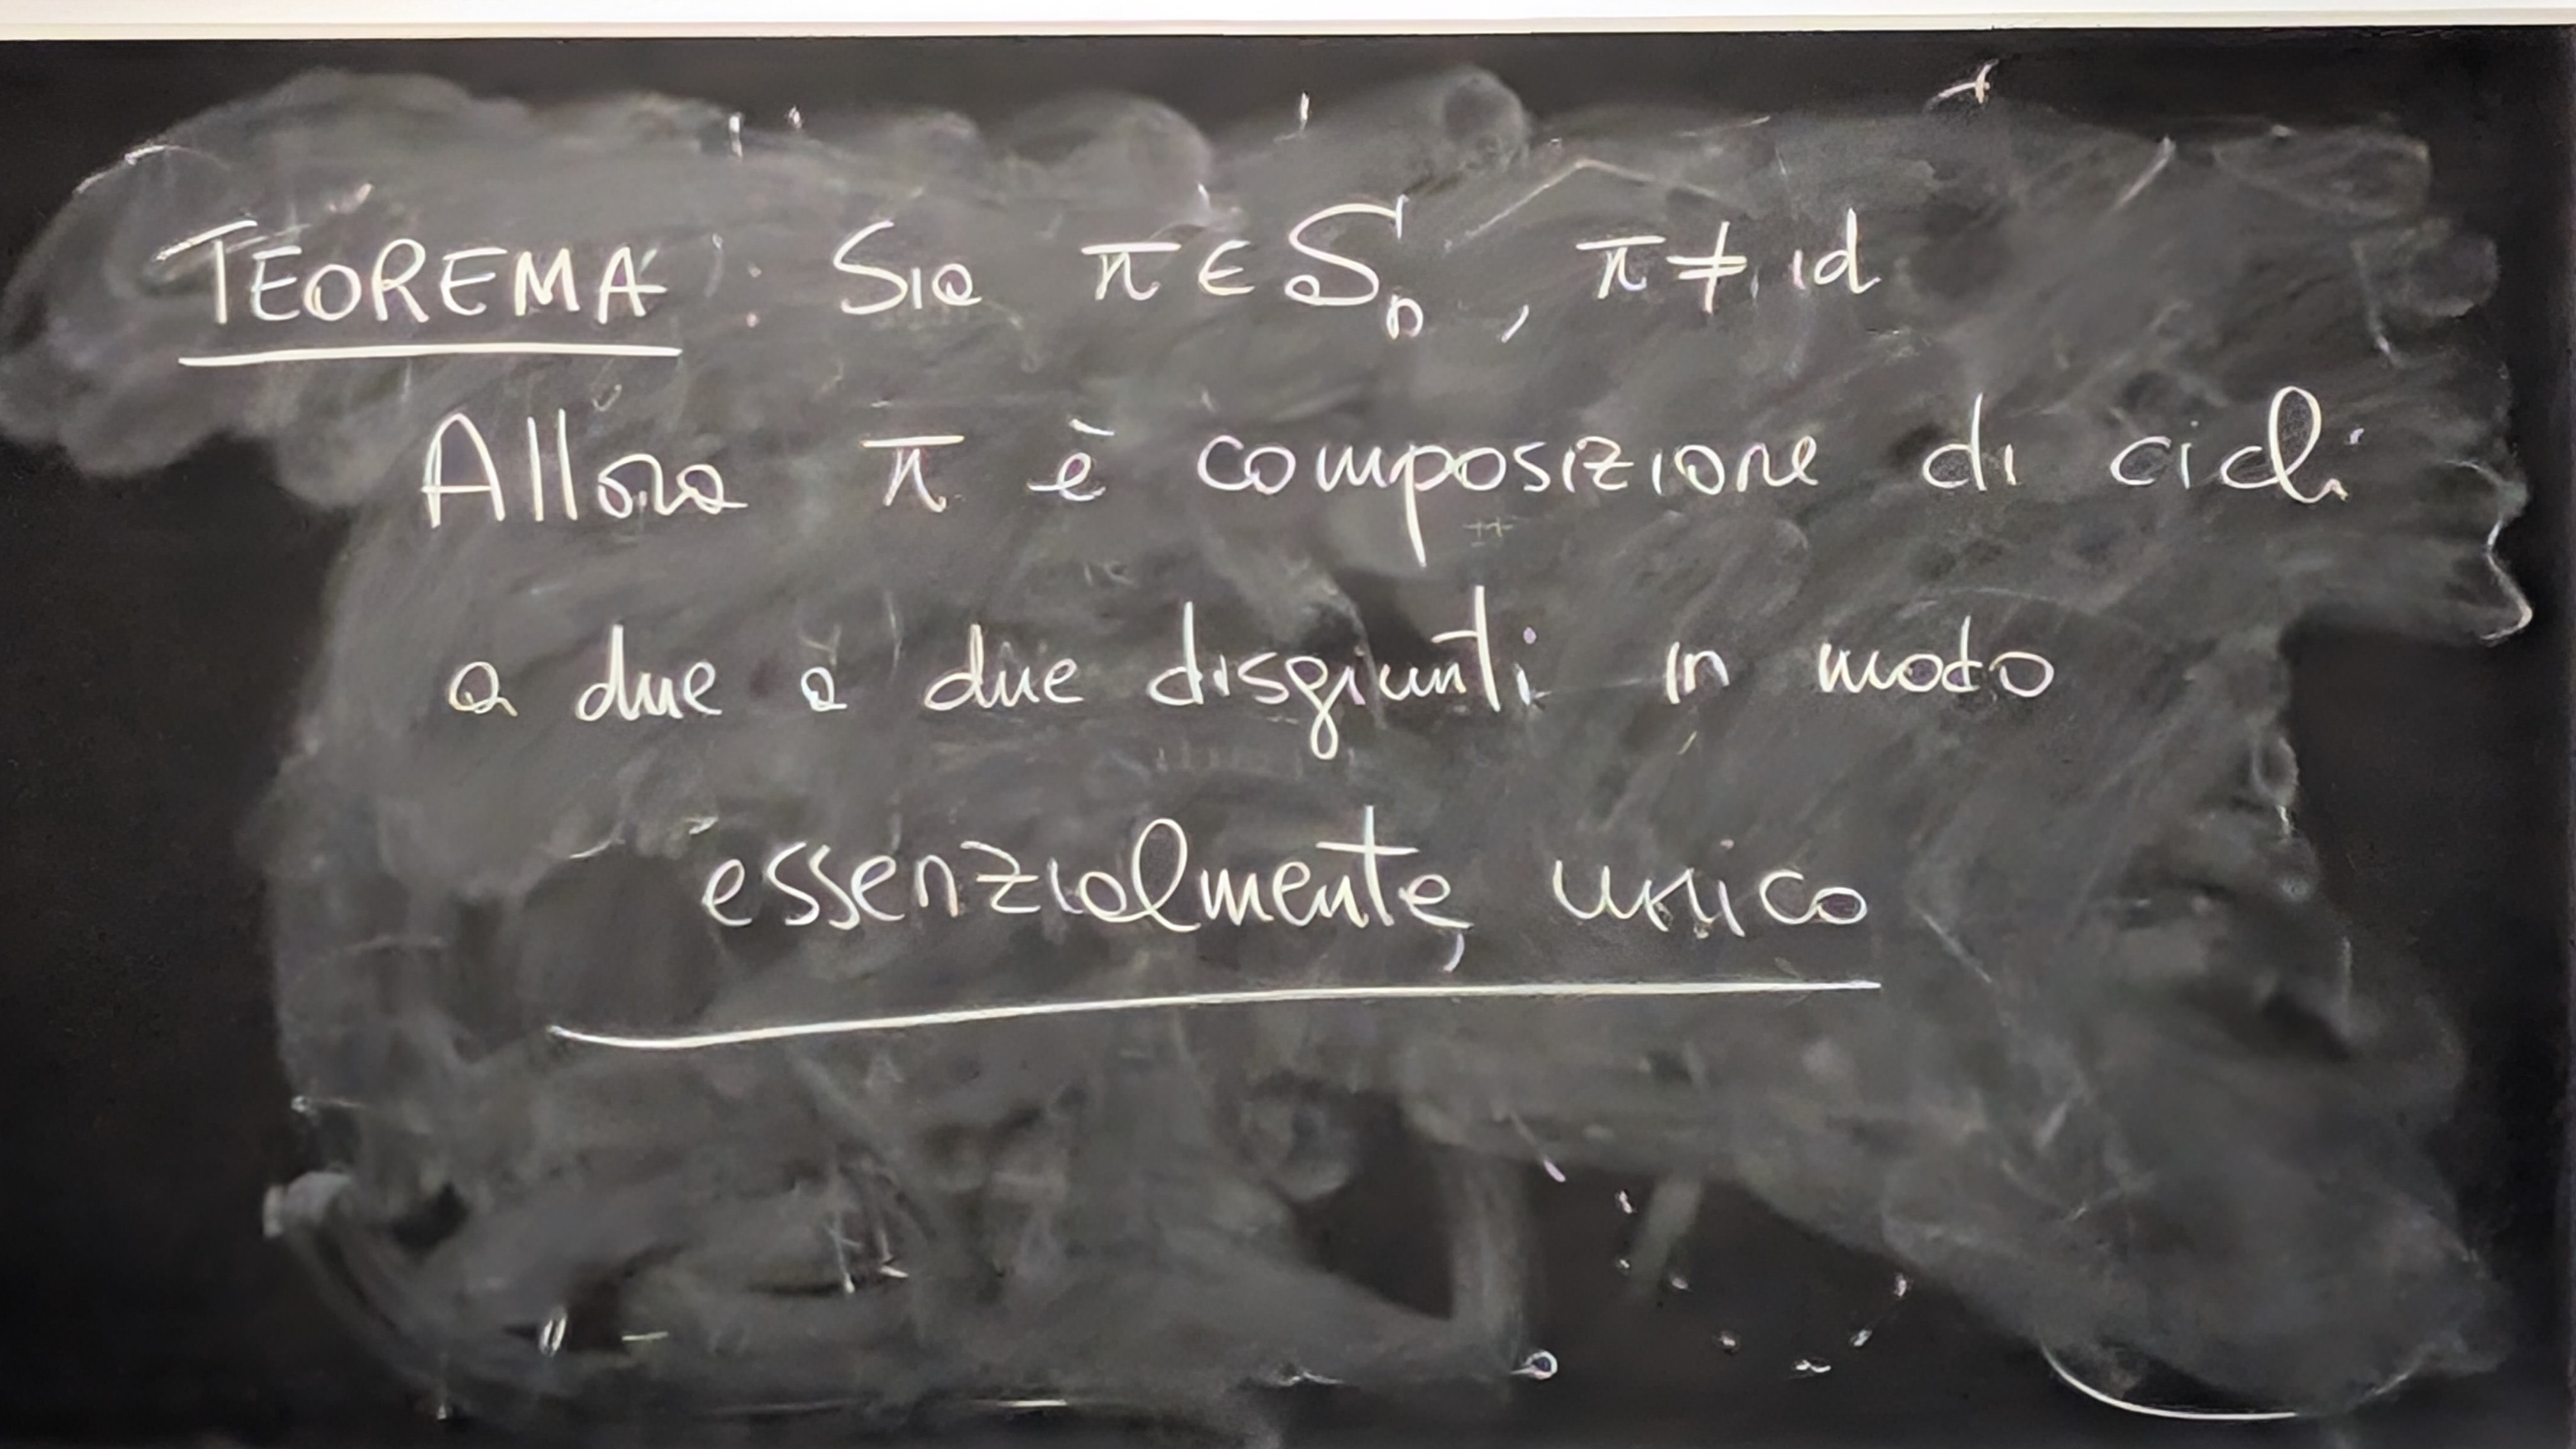 TEOREMA : Sia π ∈ Sn , π ≠ id
Allora π è composizione di cicli
a due a due disgiunti in modo
essenzialmente unico